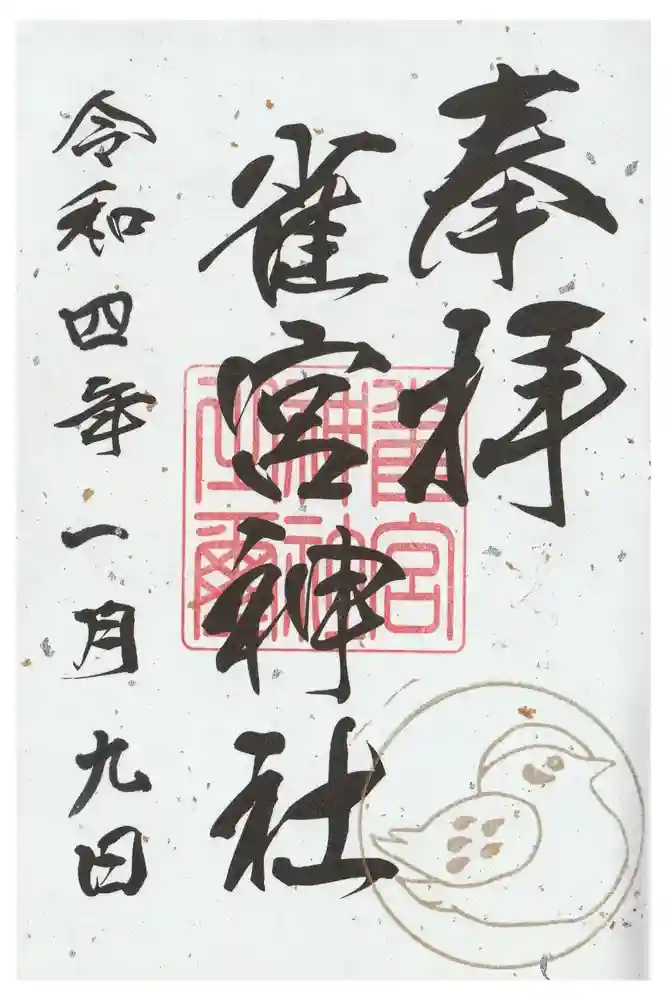 奉拝
雀宮神社
雀宮
神社
令和四年一月九日